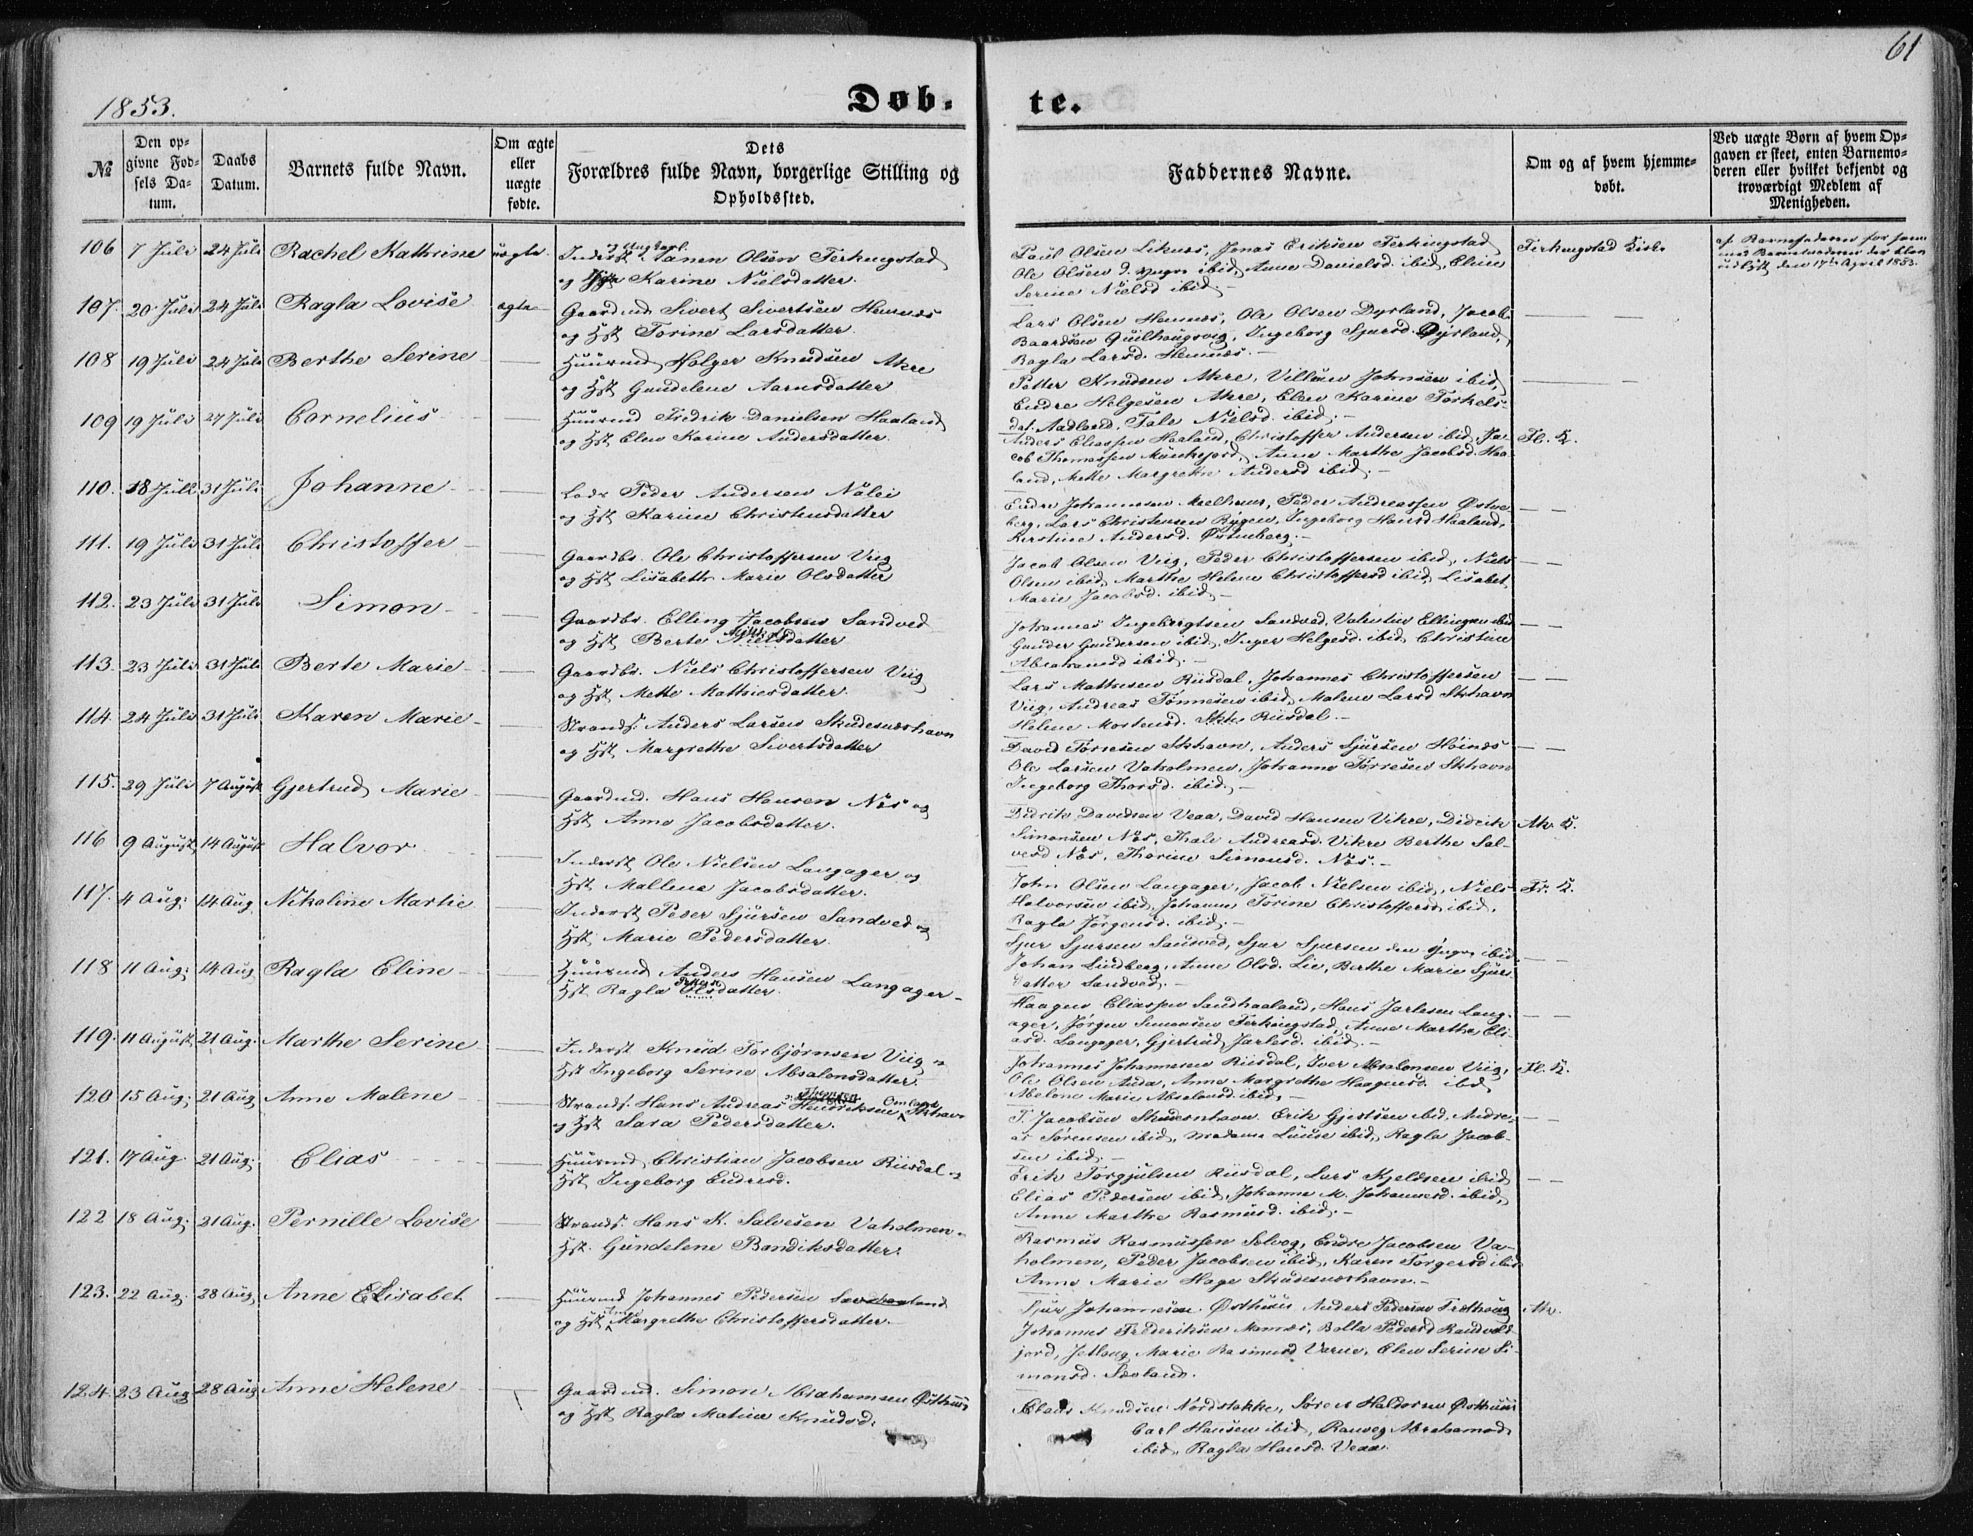 61
1853.
Døb-
te.
№
Den op-
givne Fød-
sels Da-
tum.
Daabs
Datum.
Barnets fulde Navn.
Om ægte
eller
uægte
fødte.
Dets
Forældres fulde Navn, borgerlige Stilling og
Opholdssted.
Faddernes Navne.
Om og af hvem hjemme-
døbt.
Ved uægte Børn af hvem Op-
gaven er skeet, enten Barnemo-
deren eller hvilket bekjendt og
troværdigt Medlem af
Menigheden.
106 7 Juli 24 Juli Rachel Kathrine uægte Inderst Olsen Ferkingstad
og Karine Nielsdatter.
Paul Olsen Liknes, Jonas Eriksen Ferkingstad
Ole Olsen d. yngre ibid, Anne Danielsd. ibid, Eline
Serine Nielsd ibid.
Ferkingstad Kirke
af Barnefaderen
med Barnemoderen
den 17de April 1853.
107. 20 Juli 24 Juli Ragla Lovise ægte Gaardmd Sivert Sivertsen Hemnæs
og Hst Torine Larsdatter.
Lars Olsen Hemnæs, Ole Olsen Dyrland, Jacob
Baardsen Ingeborg Sjursd. Dyrland,
Ragla Larsd. Hemnæs.
108 19 Juli 24 Juli Berthe Serine Huusmd Holger Knudsen Akre
og Hst Gundelene Aarnsdatter
Petter Knudsen Akre, Villum Johnsen ibid,
Endre Helgesen Akre, Elen Karine Torkels-
dat. Nadland, Tale Nielsd. ibid.
109 19 Juli 27 Juli Cornelius Huusmd Fredrik Danielsen Haaland
og Hst Elen Karine Andersdatter.
Anders Eliassen Haaland, Christoffer Andersen ibid, Ja-
cob Thomassen Munkejord, Anne Marthe Jacobsd. Haa-
land, Mette Margrethe Andersd ibid.
Fl. K.
110. 18 Juli 31 Juli Johanne Lods Peder Andersen
og Hst Karine Christensdatter
Endre Johannesen Peder Andreassen Østne-
berg, Lars Christensen Rygen, Ingeborg Hansd Haaland,
Kirstine Andersd. Østenberg.
111. 19 Juli 31 Juli Christoffer Gaardbr. Ole Christoffersen Viig
og Hst Lisabeth Marie Olsdatter
Jacob Olsen Viig, Peder Christoffersen ibid, Niels
Olsen ibid, Marthe Helene Christoffersd ibid, Lisabet
Marie Jacobsd. ibid.
112. 23 Juli 31 Juli Simon Gaardbr. Elling Jacobsen Sandved
og Hst Berte Nielsdatter
Johannes Ingebregtsen Sandved, Valentin Ellingsen ibid
Gunder Gundersen ibid, Inger Helgesd. ibid, Christine
Abrahamsd ibid.
113. 23 Juli 31 Juli Berte Marie Gaardbr. Niels Christoffersen Viig
og Hst Mette Mathiesdatter.
Lars Mathesen Riisdal, Johannes Christoffersen
Viig, Andreas Tønnesen ibid, Malene Larsd Skhavn
Helene Mortensd. Riisdal.
114. 24 Juli 31 Juli Karen Marie Strands. Anders Larsen Skudesnæshavn
og Hst Margrethe Sivertsdatter
David Torresen Skhavn, Anders Sjursen Høines
Ole Larsen Vaholmen, Johanne Torresen Skhavn
Ingeborg Thorsd. ibid.
115. 29 Juli 7 August Gjertrud Marie Gaardmd. Hans Hansen Næs og
Hst Anne Jacobsdatter.
Didrik Davidsen Veaa, David Hansen Vikre, Didrik
Simonsen Næs, Thale Andreasd. Vikre Berthe Sal-
vesd Næs, Thorine Simonsd. Næs.
Ak. K.
116 9 August 14 August Halvor Inderst Ole Nielsen Langager og
Hst Mallene Jacobsdatter.
John Olsen Langager, Jacob Nielsen ibid, Niels
Halvorsen ibid, Johanne Torine Christoffersd. ibid.
Ragla Jørgensd. ibid.
117. 4 Aug: 14 Aug Nikoline Martie Inderst Peder Sjursen Sandved og
Hst Marie Pedersdatter.
Sjur Sjursen Sandved, Sjur Sjursen den yngre ibid.
Johan Lindberg, Anne Olsd. Lie, Berthe Marie Sjurs-
datter Sandved.
118 11 Aug: 14 Aug Ragla Eline Huusmd Anders Hansen Langager
Hst Ragla Olsdatter.
Haagen Eliassen Sandhaaland, Hans Jarlesen Lang-
ager, Jørgen Simonsen Ferkingstad, Anne Marthe Eli-
asd. Langager, Gjertrud Jarlesd. ibid.
119. 11 August 21 Aug. Marthe Serine Inderst Knud Torbjørnsen Viig
Hst Ingeborg Serine Absalonsdatter.
Johannes Johannesen Riisdal, Iver Absalonsen Viig,
Ole Olsen Anne Margrethe Haagensd. ibd,
Abelone Marie Absalonsd. ibid.
Fl. K.
120 15 Aug: 21 Aug Anne Malene Strands. Hans Andreas Henriksen Skhavn
og Hst Sara Pedersdatter.
T. Jacobsen Skudesnhavn. Erik Gjertsen ibid, Andre-
as Sørensen ibid, Madame Luise ibid, Ragla Jacob-
sen ibid.
121. 17 Aug. 21 Aug: Elias Huusmd Christian Jacobsen Riisdal
Hst Ingeborg Endresd.
Erik Torgjulsen Riisdal, Lars Kjeldsen ibid
Elias Pedersen ibid, Johanne M. Johannesd. ibid,
Anne Marthe Rasmusd. ibid.
122 18 Aug: 21 Aug. Pernille Lovise Strands. Hans K. Salvesen Vaholmen
Hst. Gundelene Bandiksdatter.
Rasmus Rasmussen Solvog, Endre Jacobsen Va-
holmen, Peder Jacobsen ibid, Karen Torgersd ibid
Anne Marie Hage Skudesnæshavn.
123. 22 Aug: 28 Aug. Anne Elisabet Huusmd Johannes Pedersen
og Hst Anne Margrethe Christoffersdatter.
Sjur Johannesen Østhuus, Anders Pedersen
Johannes Frederiksen Bolla Pedersd
Marie Rasmusd Elen Serine Si-
monsd. Sæveland.
Ak.
124. 23 Aug 28 Aug Anne Helene Gaardmd. Simon Abrahamsen Østhuus
og Hst Ragla Malene Knudsd.
Claus Knudsen Nordstokke, Søren Haldorsen Østhuus
Carl Hansen ibid, Ranveg Abrahamsd
ibid, Ragla Hansd. Veaa.